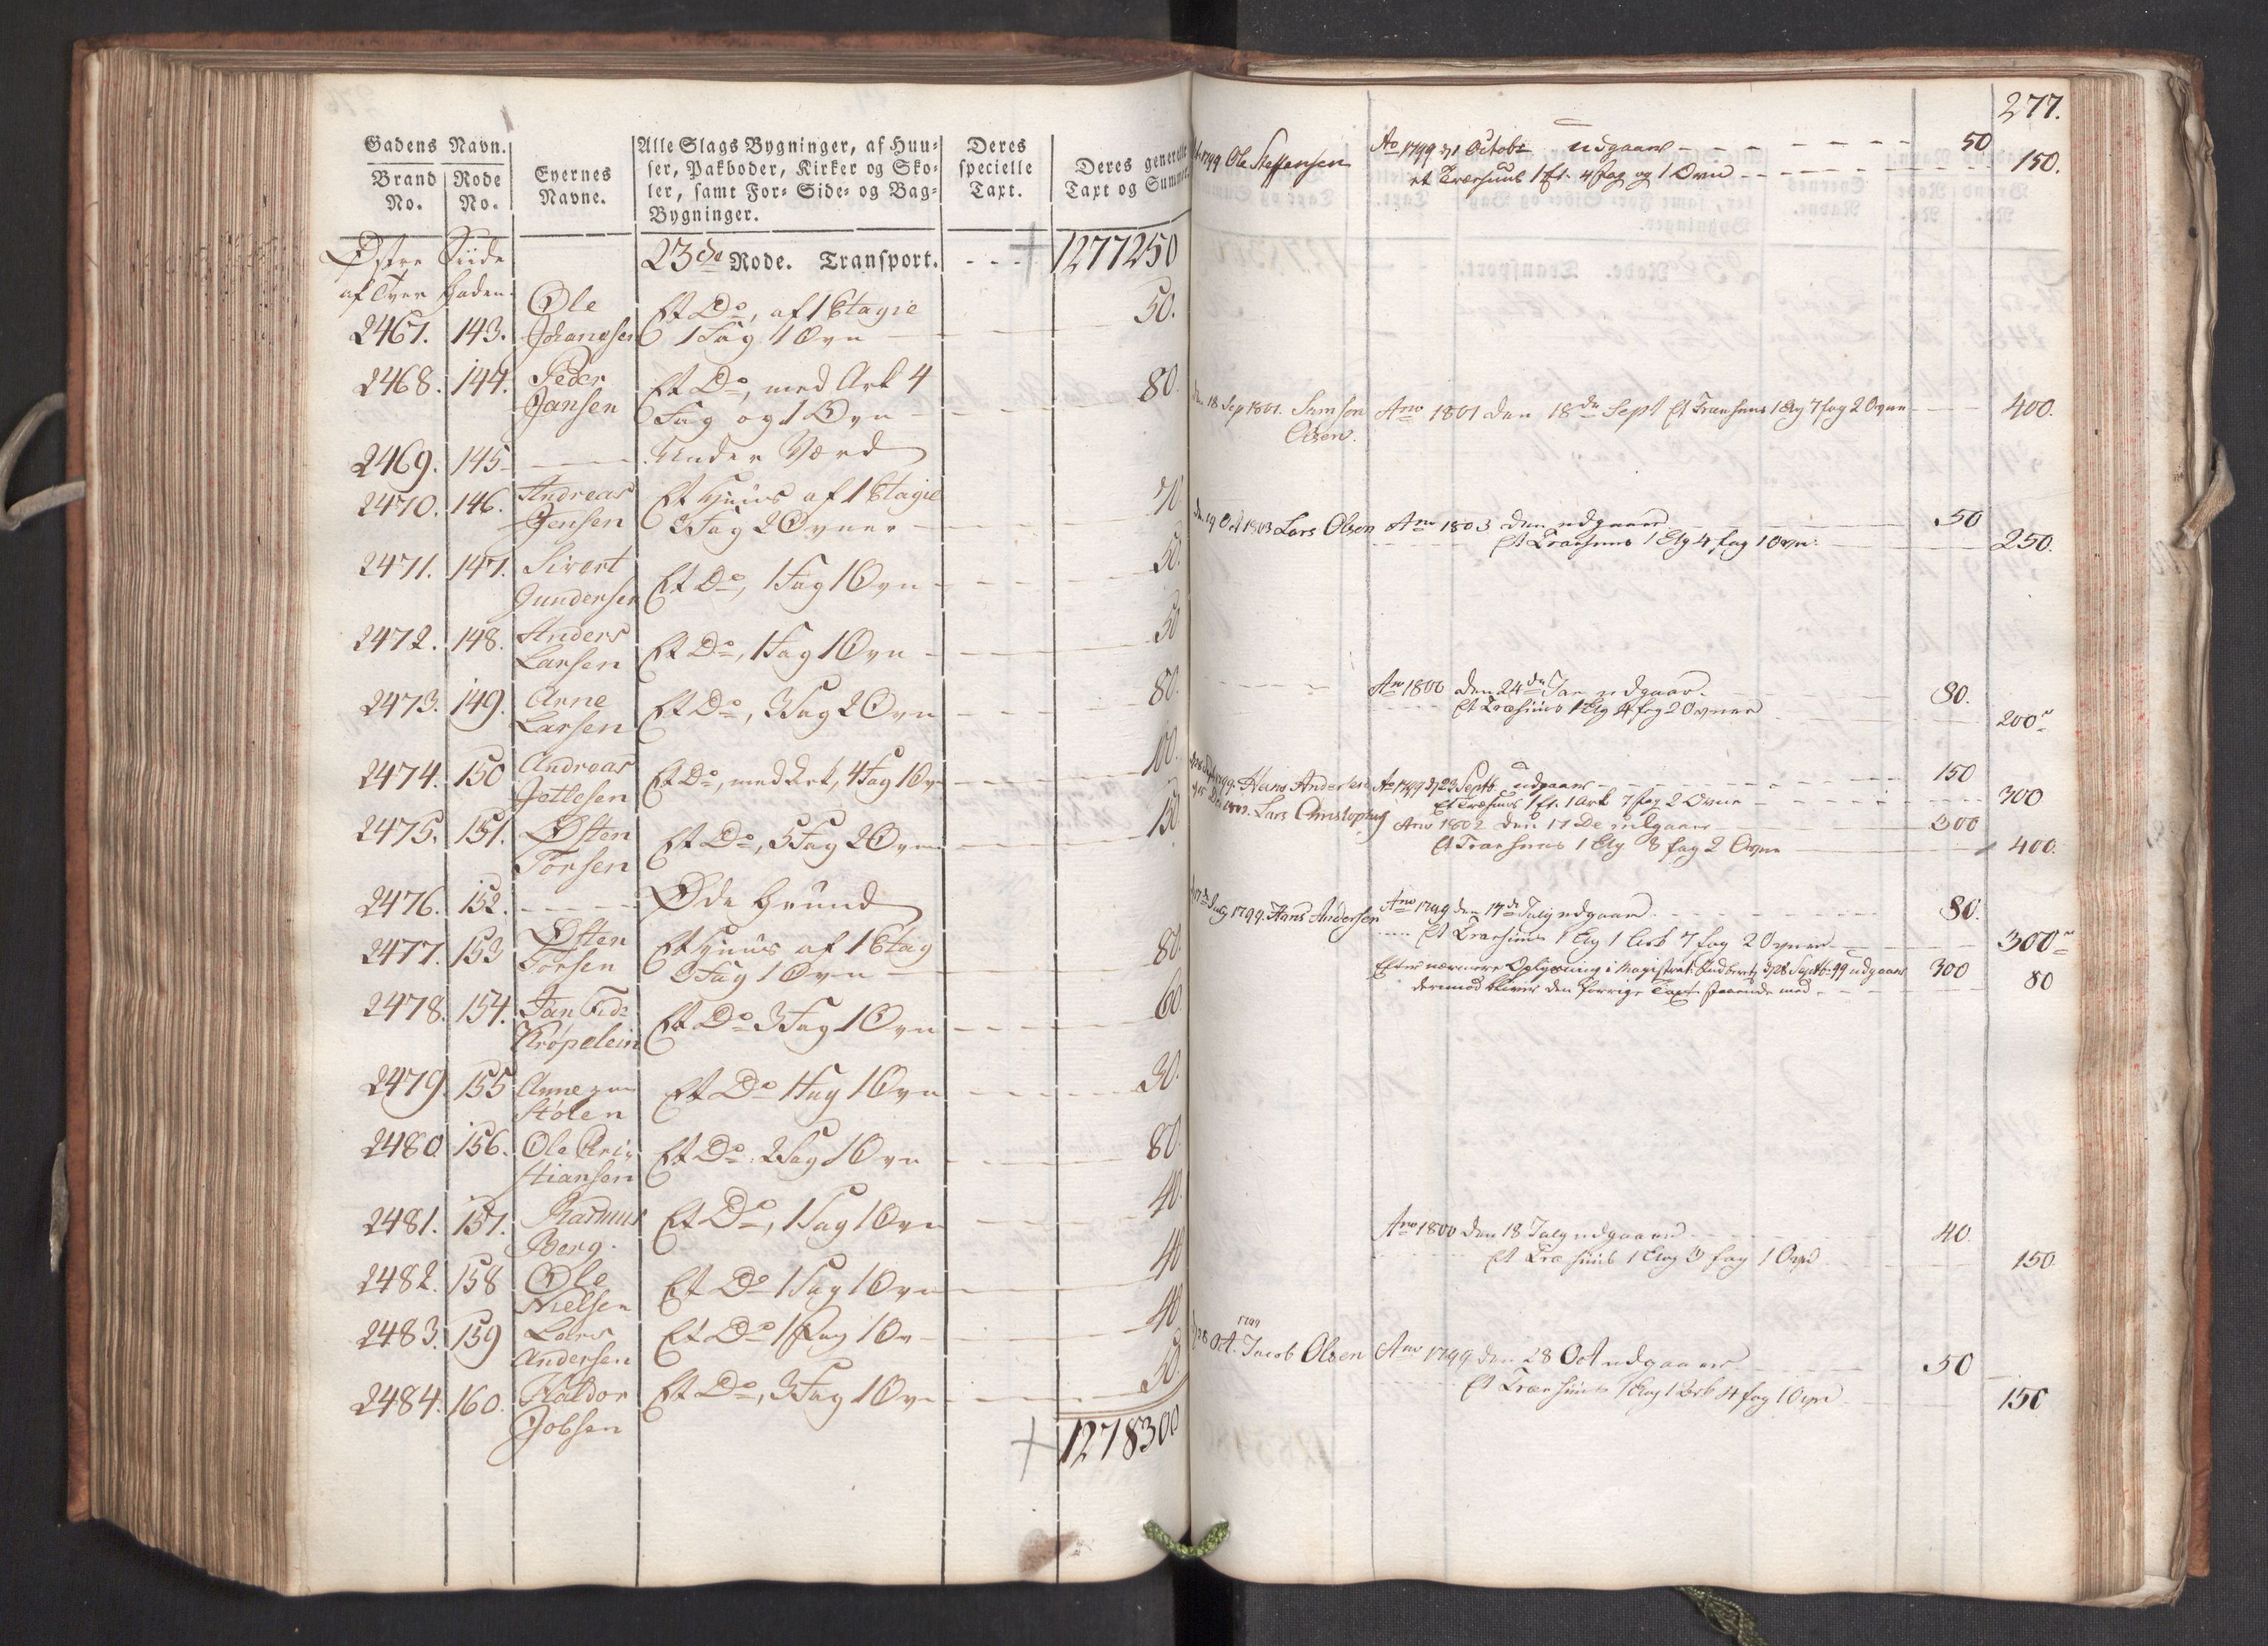 Gadens Navn.
Brand No.
Rode No.
Eyernes Navne.
Alle Slags Bygninger, af Huu-
ser, Pakboder, Kirker og Sko-
ler, samt For- Side- og Bag-
Bygninger.
Deres specielle Taxt.
Deres generelle Taxt og Summer
Østre Siide 23de Rode. Transport. - - - 1277250
af Tver Gaden
2467. 143. Ole Johanesen Et Do, af 1 Etagie
1 Fag 1 Ovn 50.
2468. 144. Peder Jansen Et Do, med Ark 4
Fag og 1 Ovn 80.
2469. 145 Under Værd
2470. 146. Andreas Jensen Et Huus af 1 Etagie
3 Fag 2 Ovner 70
2471. 147. Sivert Gundersen Et Do, 1 Fag 1 Ovn 50.
2472. 148. Anders Larsen Et Do, 1 Fag 1 Ovn 50
2473. 149. Arne Larsen Et Do, 3 Fag 2 Ovn 80.
2474. 150 Andreas Jetlesen Et Do, med Ark, 4 Fag 1 Ov 100.
2475. 151. Østen Torsen Et Do, 5 Fag 2 Ovn 150
2476. 152. Øde Grund
2477. 153 Østen Torsen Et Huus af 1 Etag
3 Fag 1 Ovn 80.
2478. 154. Jan Frid: Krøpelein Et Do 3 Fag 1 Ovn 60.
2479. 155 Anne Stølen Et Do 1 Fag 1 Ovn 30.
2480 156. Ole Kristiansen Et Do 2 Fag 1 Ovn 80
2481. 157. Rasmus Berg. Et Do, 1 Fag 1 Ovn 40.
2482. 158 Ole Nielsen Et Do 1 Fag 1 Ovn 40
2483. 159 Lars Andersen Et Do 1 Fag 1 Ov 40
2484. 160. Haldor Jobsen Et Do, 3 Fag 1 Ov 50.
1278300
277.
1799 Ole Steffensen Ao 1799 d 1 Octobr udgaaer 50
et Træehuus 1 Et. 4 fag og 1 Ovn 150.
den 18 Sep 1801. Samson Olsen. Ano 1801 den 18de Sept Et Træehuus 1 Etg 7 fag 2 Ovne 400.
den 19 Oct 1803 Lars Olsen Ano 1803 den udgaaer 50
Et Træehuus 1 Etg 4 fag 1 Ovn. 250.
Ano 1800 den 24de Jan udgaaer. 80.
Et Træhuus 1 Etg 4 fag 2 Ovner 200
1799. Hans Andersen Ao 1799 d 23 Septb. udgaaer 150
Et Træhuus 1 Et. 1 Ark 7 fag 2 Ovne 300
1802. Lars Christophers Ano 1802 den 17 De udgaaer 300
Et Træehuus 1 Etg 8 fag 2 Ovne 400.
July 1799. Hans Andersen Ano 1799 den 17de July udgaaer 80.
Et Træehuus 1 Etg 1 Ark 7 fag 2 Ovner 300
Efter nærmere Oplysning i Magistrat: d 28 Septb: 99 udgaaer 300
derimod bliver den forrige Taxt staaende med 80
Ano 1800 den 18 July udgaaer 40.
Et Træhuus 1 Etag 3 fag 1 Ovn 150
1799
28 Oct. Jacob Olsen Ano 1799 den 28 Oct udgaaer 50
Et Træehuus 1 Etag 1 Ark 4 fag 1 Ovn 150